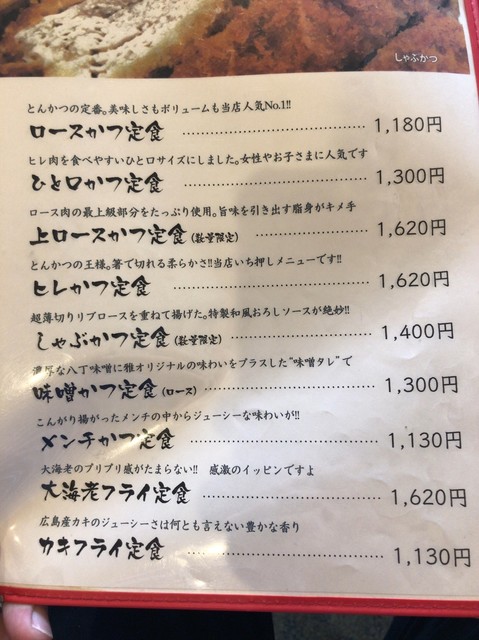 しゃぶかつ
とんかつの定番。美味しさもボリュームも当店人気No.1!!
ロースかつ定食 …………………… 1,180円
ヒレ肉を食べやすいひと口サイズにしました。女性やお子さまに人気です
ひと口かつ定食 …………………… 1,300円
ロース肉の最上級部分をたっぷり使用。旨味を引き出す脂身がキメ手
上ロースかつ定食(数量限定) …………… 1,620円
とんかつの王様。箸で切れる柔らかさ!!当店いち押しメニューです!!
ヒレかつ定食 …………………… 1,620円
超薄切りリブロースを重ねて揚げた。特製和風おろしソースが絶妙!!
しゃぶかつ定食(数量限定) ……………… 1,400円
濃厚な八丁味噌に雅オリジナルの味わいをプラスした"味噌タレ"で
味噌かつ定食(ロース) ………………… 1,300円
こんがり揚がったメンチの中からジューシーな味わいが!!
メンチかつ定食 …………………… 1,130円
大海老のプリプリ感がたまらない!! 感激のイッピンですよ
大海老フライ定食 ………………… 1,620円
広島産カキのジューシーさは何とも言えない豊かな香り
カキフライ定食 …………………… 1,130円